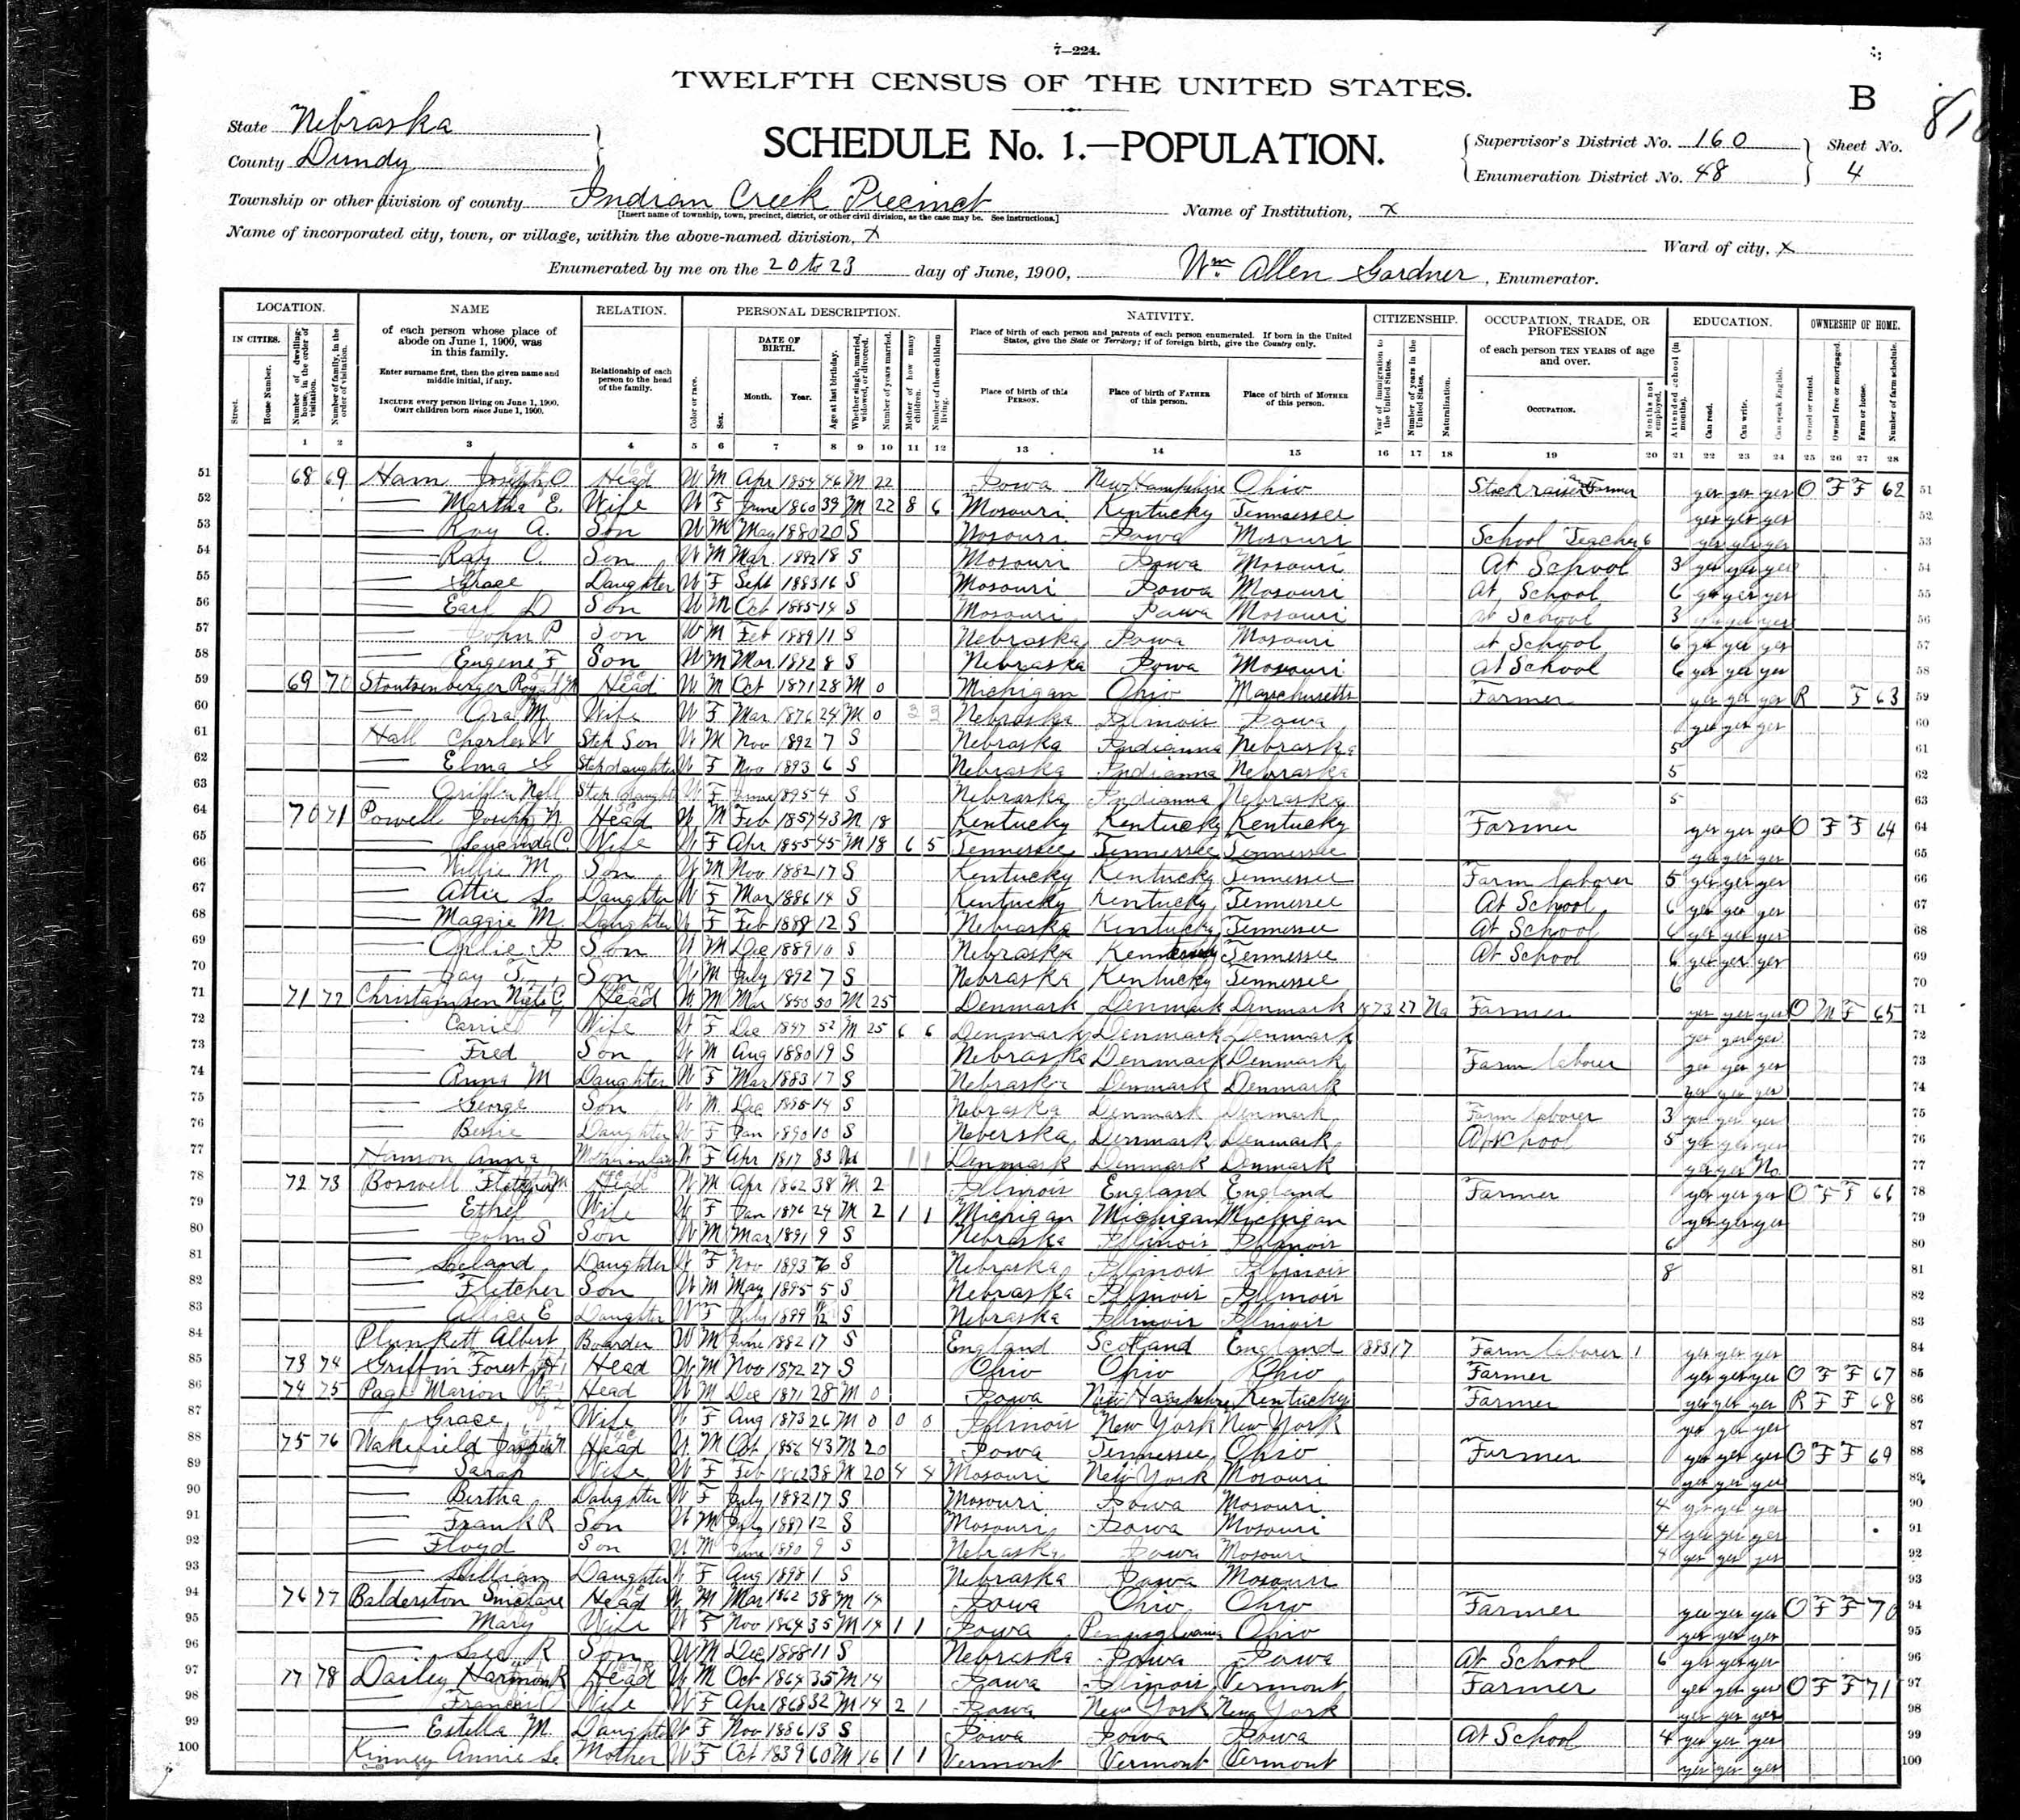 7—224.
TWELFTH CENSUS OF THE UNITED STATES.
B
State Nebraska
County Dundy
SCHEDULE No. 1.—POPULATION.
Supervisor's District No. 160
Enumeration District No. 48
Sheet No.
4
Township or other division of county Indian Creek Precinct
[Insert name of township, town, precinct, district, or other civil division, as the case may be. See instructions.]
Name of Institution, x
Name of incorporated city, town, or village, within the above-named division, x
Ward of city, x
Enumerated by me on the 20 to 23 day of June, 1900, Wm Allen Gardner, Enumerator.
LOCATION. NAME RELATION. PERSONAL DESCRIPTION. NATIVITY. CITIZENSHIP. OCCUPATION, TRADE, OR PROFESSION EDUCATION. OWNERSHIP OF HOME.
IN CITIES. Street. House Number. Number of dwelling-house, in the order of visitation. Number of family, in the order of visitation.
of each person whose place of abode on June 1, 1900, was in this family.
Enter surname first, then the given name and middle initial, if any.
INCLUDE every person living on June 1, 1900. OMIT children born since June 1, 1900.
Relationship of each person to the head of the family.
Color or race. Sex. DATE OF BIRTH. Month. Year. Age at last birthday. Whether single, married, widowed, or divorced. Number of years married. Mother of how many children. Number of these children living.
Place of birth of each person and parents of each person enumerated. If born in the United States, give the State or Territory; if of foreign birth, give the Country only.
Place of birth of this PERSON. Place of birth of FATHER of this person. Place of birth of MOTHER of this person.
Year of immigration to the United States. Number of years in the United States. Naturalization.
of each person TEN YEARS of age and over.
OCCUPATION. Months not employed.
Attended school (in months). Can read. Can write. Can speak English.
Owned or rented. Owned free or mortgaged. Farm or house. Number of farm schedule.
1 2 3 4 5 6 7 8 9 10 11 12 13 14 15 16 17 18 19 20 21 22 23 24 25 26 27 28
51 68 69 Ham Joseph O Head W M Apr 1854 46 M 22 Iowa New Hampshire Ohio Stockraiser Farmer yes yes yes O F F 62 51
52 Martha E. Wife W F June 1860 39 M 22 8 6 Mosouri Kentucky Tennessee yes yes yes 52
53 Roy A. Son W M May 1880 20 S Mosouri Iowa Mosouri School Teacher 6 yes yes yes 53
54 Ray O. Son W M Mar 1882 18 S Mosouri Iowa Mosouri At School 3 yes yes yes 54
55 Grace Daughter W F Sept 1883 16 S Mosouri Iowa Mosouri At School 6 yes yes yes 55
56 Earl D Son W M Oct 1885 14 S Mosouri Iowa Mosouri at School 3 yes yes yes 56
57 John P Son W M Feb 1889 11 S Nebraska Iowa Mosouri at School 6 yes yes yes 57
58 Eugene F Son W M Mar 1892 8 S Nebraska Iowa Mosouri at School 6 yes yes yes 58
59 69 70 Stoutsenberger Roy Head W M Oct 1871 28 M 0 Michigan Ohio Massachusetts Farmer yes yes yes R F 63 59
60 Ora M. Wife W F Mar 1876 24 M 0 3 3 Nebraska Illinois Iowa yes yes yes 60
61 Hall Charles W Step Son W M Nov 1892 7 S Nebraska Indianna Nebraska 5 61
62 Elma G Step daughter W F Nov 1893 6 S Nebraska Indianna Nebraska 5 62
63 Step daughter W F June 1895 4 S Nebraska Indianna Nebraska 5 63
64 70 71 Powell Joseph N. Head W M Feb 1857 43 M 18 Kentucky Kentucky Kentucky Farmer yes yes yes O F F 64 64
65 C. Wife W F Apr 1855 45 M 18 6 5 Tennessee Tennessee Tennessee yes yes yes 65
66 Willie M. Son W M Nov 1882 17 S Kentucky Kentucky Tennessee Farm laborer 5 yes yes yes 66
67 Attie L Daughter W F Mar 1886 14 S Kentucky Kentucky Tennessee At School 6 yes yes yes 67
68 Maggie M. Daughter W F Feb 1888 12 S Nebraska Kentucky Tennessee At School 6 yes yes yes 68
69 P. Son W M Dec 1889 10 S Nebraska Kentucky Tennessee At School 6 yes yes yes 69
70 Jay T. Son W M July 1892 7 S Nebraska Kentucky Tennessee 6 70
71 71 72 Christiansen Niels C. Head W M Mar 1850 50 M 25 Denmark Denmark Denmark 1873 27 Na Farmer yes yes yes O M F 65 71
72 Carrie Wife W F Dec 1847 52 M 25 6 6 Denmark Denmark Denmark yes yes yes 72
73 Fred Son W M Aug 1880 19 S Nebraska Denmark Denmark Farm laborer yes yes yes 73
74 Anna M Daughter W F Mar 1883 17 S Nebraska Denmark Denmark yes yes yes 74
75 George Son W M Dec 14 S Nebraska Denmark Denmark Farm laborer 3 yes yes yes 75
76 Bessie Daughter W F Jan 1890 10 S Neberska Denmark Denmark At school 5 yes yes yes 76
77 Hanson Anna Mother in law W F Apr 1817 83 Wd 1 1 Denmark Denmark Denmark yes yes No 77
78 72 73 Boswell Fletcher M Head W M Apr 1862 38 M 2 Illinois England England Farmer yes yes yes O F F 66 78
79 Ethel Wife W F Jan 1876 24 M 2 1 1 Michigan Michigan Michigan yes yes yes 79
80 John S Son W M Mar 1891 9 S Nebraska Illinois Illinois 6 80
81 Leland Daughter W F Nov 1893 6 S Nebraska Illinois Illinois 8 81
82 Fletcher Son W M May 1895 5 S Nebraska Illinois Illinois 82
83 Allice E Daughter W F July 1899 S Nebraska Illinois Illinois 83
84 Plunkett Albert Boarder W M June 1882 17 S England Scotland England 1883 17 Farm laborer 1 yes yes yes 84
85 73 74 Griffin Forest H Head W M Nov 1872 27 S Ohio Ohio Ohio Farmer yes yes yes O F F 67 85
86 74 75 Page Marion W Head W M Dec 1871 28 M 0 Iowa New Hampshire Kentucky Farmer yes yes yes R F F 68 86
87 Grace Wife W F Aug 1873 26 M 0 0 0 Illinois New York New York yes yes yes 87
88 75 76 Wakefield Jasper N. Head W M Oct 1856 43 M 20 Iowa Tennessee Ohio Farmer yes yes yes O F F 69 88
89 Sarah Wife W F Feb 1862 38 M 20 4 4 Mosouri New York Mosouri yes yes yes 89
90 Bertha Daughter W F July 1882 17 S Mosouri Iowa Mosouri 4 yes yes yes 90
91 Frank R Son W M July 1887 12 S Mosouri Iowa Mosouri 4 yes yes yes 91
92 Floyd Son W M June 1890 9 S Nebraska Iowa Mosouri 4 yes yes yes 92
93 Lillian Daughter W F Aug 1898 1 S Nebraska Iowa Mosouri 93
94 76 77 Balderston Sinclare Head W M Mar 1862 38 M 14 Iowa Ohio Ohio Farmer yes yes yes O F F 70 94
95 Mary Wife W F Nov 1864 35 M 14 1 1 Iowa Pennsylvania Ohio yes yes yes 95
96 R Son W M Dec 1888 11 S Nebraska Iowa Iowa At School 6 yes yes yes 96
97 77 78 Dailey Harmon R Head W M Oct 1864 35 M 14 Iowa Illinois Vermont Farmer yes yes yes O F F 71 97
98 Francis Wife W F Apr 1868 32 M 14 2 1 Iowa New York New York yes yes yes 98
99 Estella M. Daughter W F Nov 1886 13 S Iowa Iowa Iowa At School 4 yes yes yes 99
100 Kinney Annie Le Mother W F Oct 1839 60 M 16 1 1 Vermont Vermont Vermont yes yes yes 100